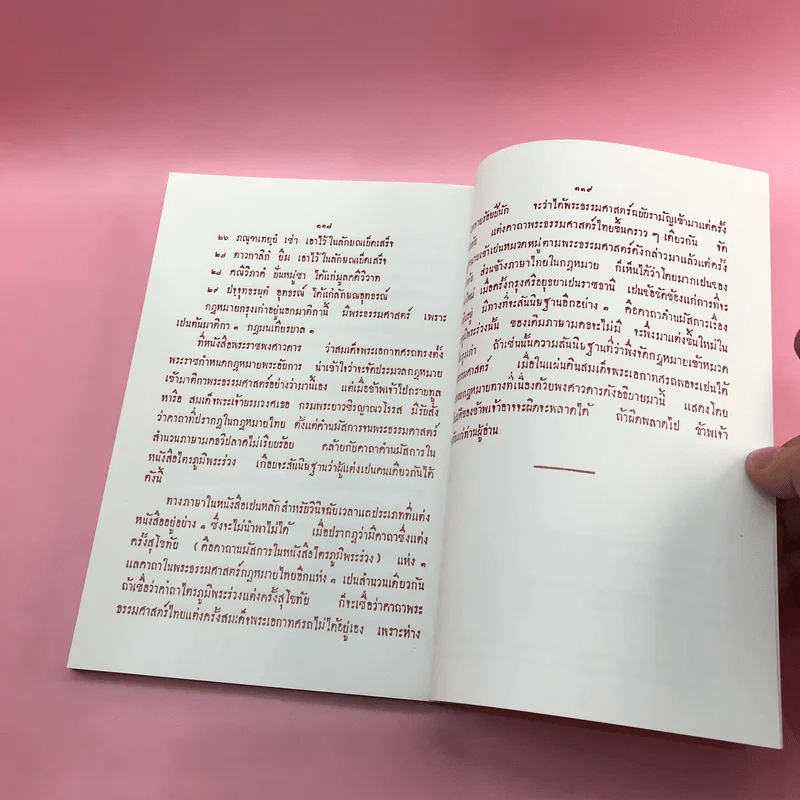 ๑๑๘
๒๖ ภณฺฑเทยฺยํ เช่า เอาไว้ในลักษณเบ็ดเสร็จ
๒๗ ตาวกาลิกํ ยืม เอาไว้ในลักษณเบ็ดเสร็จ
๒๘ คณิวิภาคํ ปันหมู่ข้า ได้แก่มูลคดีวิวาท
๒๙ ปจฺจุทธรนฺตํ อุทธรณ์ ได้แก่ลักษณอุทธรณ์
กฎหมายกรุงเก่าอยู่นอกมาติกานี้ มีพระธรรมศาสตร์ เพราะ
เปนต้นมาติกา ๑ กฎมนเทียรบาล ๑
ที่หนังสือพระราชพงศาวดาร ว่าสมเด็จพระเอกาทศรถทรงตั้ง
พระราชกำหนดกฎหมายพระอัยการ น่าเข้าใจว่าจะจัดประมวลกฎหมาย
เข้ามาติกาพระธรรมศาสตร์อย่างว่ามานี้เอง แต่เมื่อข้าพเจ้าไปกราบทูล
หารือ สมเด็จพระเจ้าบรมวงศเธอ กรมพระยาวชิรญาณวโรรส มีรับสั่ง
ว่าคาถาที่ปรากฏในกฎหมายไทย ตั้งแต่คำนมัสการจนพระธรรมศาสตร์
สำนวนภาษามคธวิปลาศไม่เรียบร้อย คล้ายกับคาถาคำนมัสการใน
หนังสือไตรภูมิพระร่วง เกือบจะสันนิษฐานว่าผู้แต่งเปนคนเดียวกันได้
ดังนี้
ทางภาษาในหนังสือเปนหลักสำหรับวินิจฉัยเวลาแลประเภทที่แต่ง
หนังสืออยู่อย่าง ๑ ซึ่งจะไม่นำพาไม่ได้ เมื่อปรากฏว่ามีคาถาซึ่งแต่ง
ครั้งสุโขทัย (คือคาถานมัสการในหนังสือไตรภูมิพระร่วง) แห่ง ๑
แลคาถาในพระธรรมศาสตร์กฎหมายไทยอีกแห่ง ๑ เปนสำนวนเดียวกัน
ถ้าเชื่อว่าคาถาไตรภูมิพระร่วงแต่งครั้งสุโขทัย ก็จะเชื่อว่าคาถาพระ
ธรรมศาสตร์ไทยแต่งครั้งสมเด็จพระเอกาทศรถไม่ได้อยู่เอง เพราะห่าง
๑๑๙
หลายร้อยปีนัก จะว่าได้พระธรรมศาสตร์ฉบับรามัญเข้ามาแต่ครั้ง
แต่งคาถาพระธรรมศาสตร์ไทยขึ้นคราว ๆ เดียวกัน จัด
เข้าเปนหมวดหมู่ตามพระธรรมศาสตร์ดังกล่าวมาแล้วแต่ครั้ง
ส่วนข้างภาษาไทยในกฎหมาย ก็เห็นได้ว่าโดยมากเปนของ
เมื่อครั้งกรุงศรีอยุธยาเปนราชธานี เปนข้อขัดข้องแก่การที่จะ
อยู่ มีทางที่จะสันนิษฐานอีกอย่าง ๑ คือคาถาคำนมัสการเรื่อง
พระร่วงนั้น ของเดิมภาษามคธจะไม่มี จะพึ่งมาแต่งขึ้นใหม่ใน
กรุงเก่า ถ้าเช่นนั้นความสันนิษฐานที่ว่าพึ่งจัดกฎหมายเข้าหมวด
ธรรมศาสตร์ เมื่อในแผ่นดินสมเด็จพระเอกาทศรถพอจะเปนได้
กฎหมายทางที่เนื่องด้วยพงศาวดารดังอธิบายมานี้ แสดงโดย
ของข้าพเจ้าอาจจะผิดจะพลาดได้ ถ้าผิดพลาดไป ข้าพเจ้า
แก่ท่านผู้อ่าน